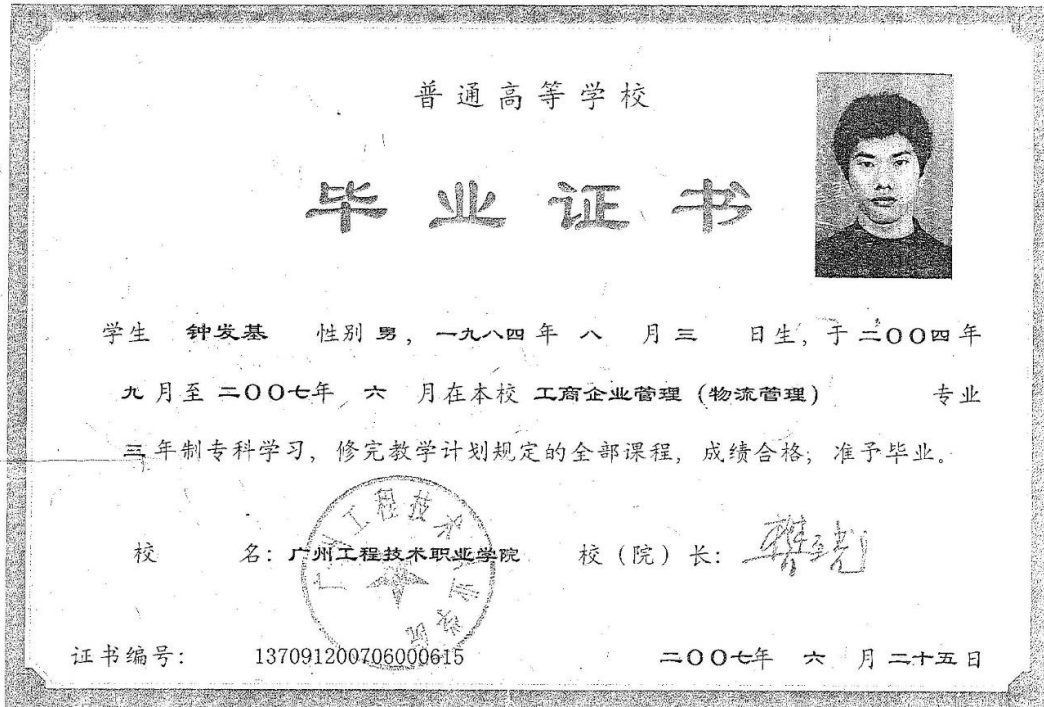 普通高等学校
毕业证书
学生 钟发基 性别 男，一九八四年 八 月 三 日生，于二〇〇四年
九 月至 二〇〇七年 六 月在本校 工商企业管理（物流管理） 专业
三年制专科学习，修完教学计划规定的全部课程，成绩合格，准予毕业。
广州工程技术职业学院
校 名：广州工程技术职业学院 校（院）长：
证书编号： 137091200706000615 二〇〇七年 六 月 二十五日